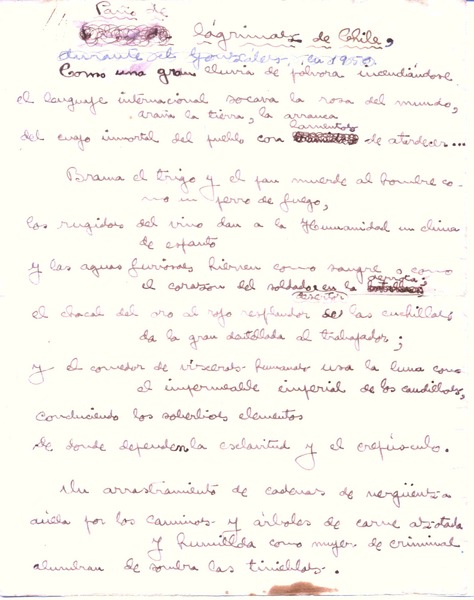 Pario de
lágrimas de Chile,
durante del González, en 1950.
Como una gran lluvia de pólvora incendiándose
el lenguaje internacional socava la rosa del mundo,
araña la tierra, la arranca
lamentos
del cuajo inmortal del pueblo con de atardecer...
Brama el trigo y el pan muerde al hombre co-
mo un perro de fuego,
los rugidos del vino dan a la Humanidad un clima
de espanto
y las aguas furiosas hierven como sangre o como
derrota;
el corazón del soldado en la
desertor
el chacal del oro al rojo resplandor de las cuchillas
da la gran dentellada al trabajador;
y el comedor de vísceras humanas usa la luna como
el impermeable imperial de los caudillos,
conduciendo los soberbios elementos
de donde dependen la esclavitud y el crepúsculo.
Un arrastramiento de cadenas de vergüenza
aúlla por los caminos y árboles de carne azotada
y humillada como mujer de criminal
alumbran de sombra las tinieblas.